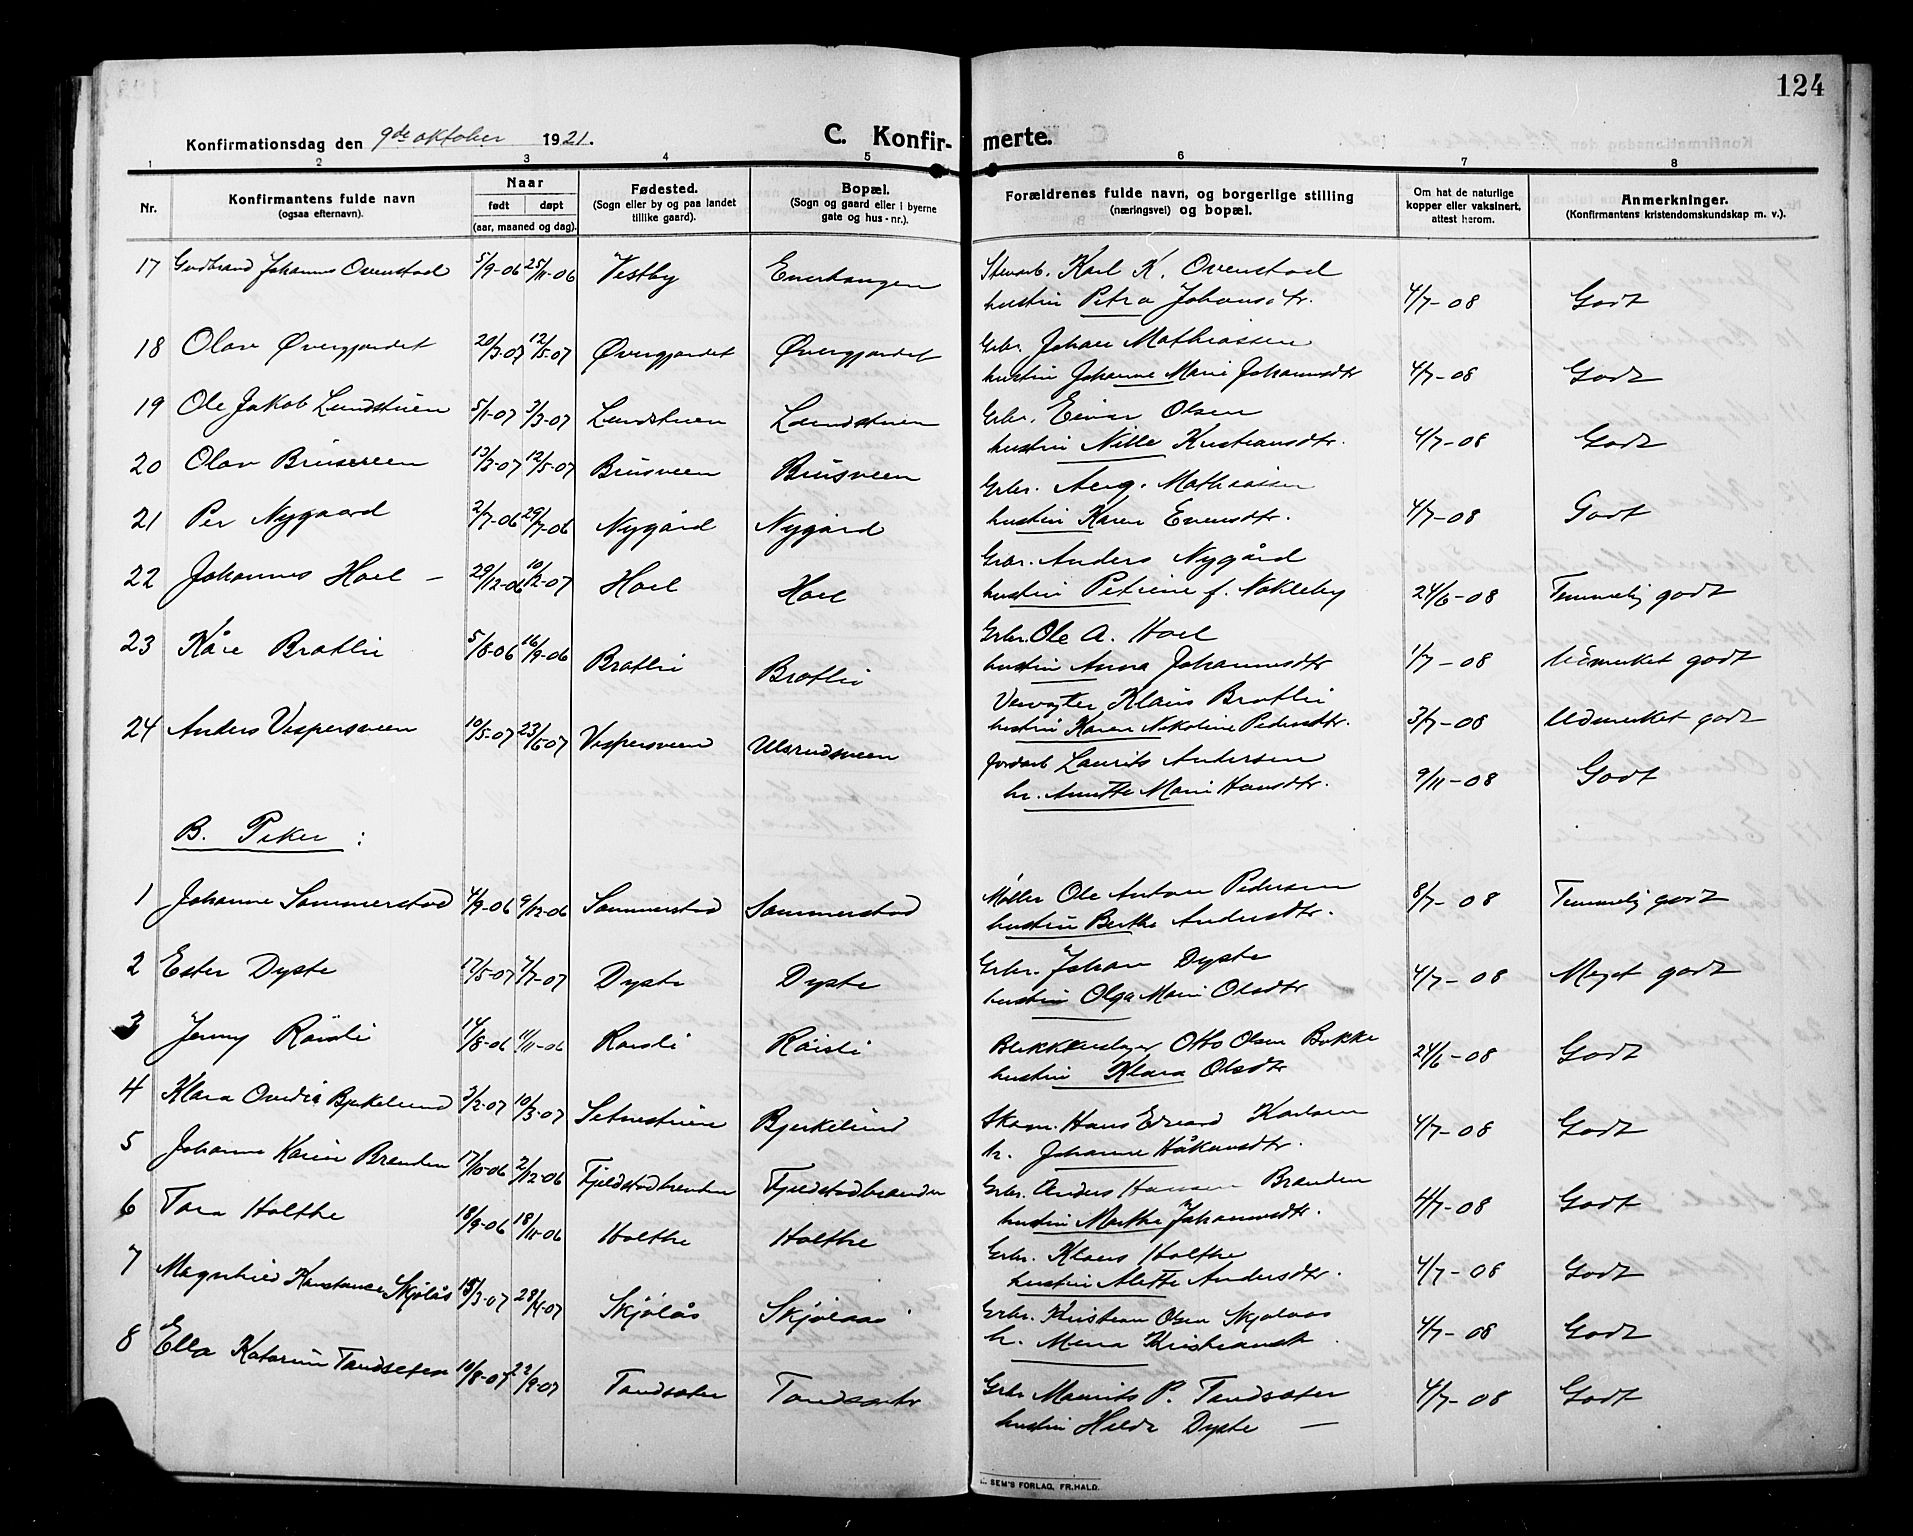 124
Konfirmationsdag den 9de oktober 1921.
C. Konfir- merte.
1 2 3 4 5 6 7 8
Nr.
Konfirmantens fulde navn
(ogsaa efternavn).
Naar
født døpt
(aar, maaned og dag).
Fødested.
(Sogn eller by og paa landet
tillike gaard).
Bopæl.
(Sogn og gaard eller i byerne
gate og hus-nr.).
Forældrenes fulde navn, og borgerlige stilling
(næringsvei) og bopæl.
Om hat de naturlige
kopper eller vaksinert,
attest herom.
Anmerkninger.
(Konfirmantens kristendomskundskap m. v.).
17 Gudbrand Johannes Ovenstad 5/9-06 25/11-06 Vestby Enerhaugen
Karl K. Ovenstad
hustru Petra Johansdtr. 4/7-08 Godt
18 Olav Øvergjordet 20/3-07 12/5-07 Øvergjordet Øvergjordet
Grbr. Johan Mathiassen
hustru Johanne Marie Johannesdtr 4/7-08 Godt
19 Ole Jakob Lundstuen 5/1-07 3/3-07 Lundstuen Lundstuen
Grbr. Einar Olsen
hustru Nille Kristiansdtr. 4/7-08 Godt
20 Olav Brusveen 13/3-07 12/5-07 Brusveen Brusveen
Grbr. Aug. Mathiassen
hustru Karen Evensdtr. 4/7-08 Godt
21 Per Nygaard 2/7-06 29/7-06 Nygård Nygård
Grbr. Anders Nygård
hustru Petrine f. Nøkleby 24/6-08 Temmelig godt
22 Johannes Hoel - 29/12-06 10/2-07 Hoel Hoel
Grbr. Ole A. Hoel
hustru Anna Johannesdtr 1/7-08 Udmerket godt
23 Kåre Bratlie 5/8-06 16/9-06 Bratlie Bratlie
Klaus Bratlie
hustru Karen Nikoline Pedersdtr. 3/7-08 Udmerket godt
24 Anders Vespersveen 10/5-07 23/6-07 Vespersveen Ulsrudsveen
Jordarb Laurits Andersen
h. Anette Marie Hansdtr. 9/11-08 Godt
B. Piker:
1 Johanne Sommerstad 4/9-06 9/12-06 Sommerstad Sommerstad
Møller Ole Anton Pedersen
hustru Berthe Andersdtr. 8/7-08 Temmelig godt
2 Ester Dyste 17/5-07 7/7-07 Dyste Dyste
Grbr. Johan Dyste
hustru Olga Marie Olsdtr 4/7-08 Meget godt
3 Jenny Röisli 14/8-06 1/11-06 Röisli Röisli
Blikkenslager Otto Olsen Bakke
hustru Klara Olsdtr 24/6-08 Godt
4 Klara Ovedia Bjerkelund 3/2-07 10/3-07 Setnestuen Bjerkelund
Skom. Hans Edvard Karlsen
h. Johanne Håkensdtr. 4/7-08 Godt
5 Johanne Karine Branden 17/10-06 2/12-06 Fjeldstadbranden Fjeldstadbranden
Grbr. Anders Hansen Branden
hustru Marthe Johannesdtr. 4/7-08 Godt
6 Tora Holthe 18/9-06 18/11-06 Holthe Holthe
Grbr. Klaus Holthe
hustru Alette Andersdtr. 4/7-08 Godt
7 Magnhild Konstanse Skjølås 15/3-07 28/4-07 Skjølås Skjølaas
Grbr. Kristian Olsen Skjølaas
h. Mena Kristiansdt. 4/7-08 Godt
8 Ella Katarine Tandsæter 10/8-07 22/9-07 Tandsæter Tandsæter
Grbr Maurits P. Tandsæter
hustru Hilda Dyste — 4/7-08 Godt
SEM'S FORLAG, FR.HALD.